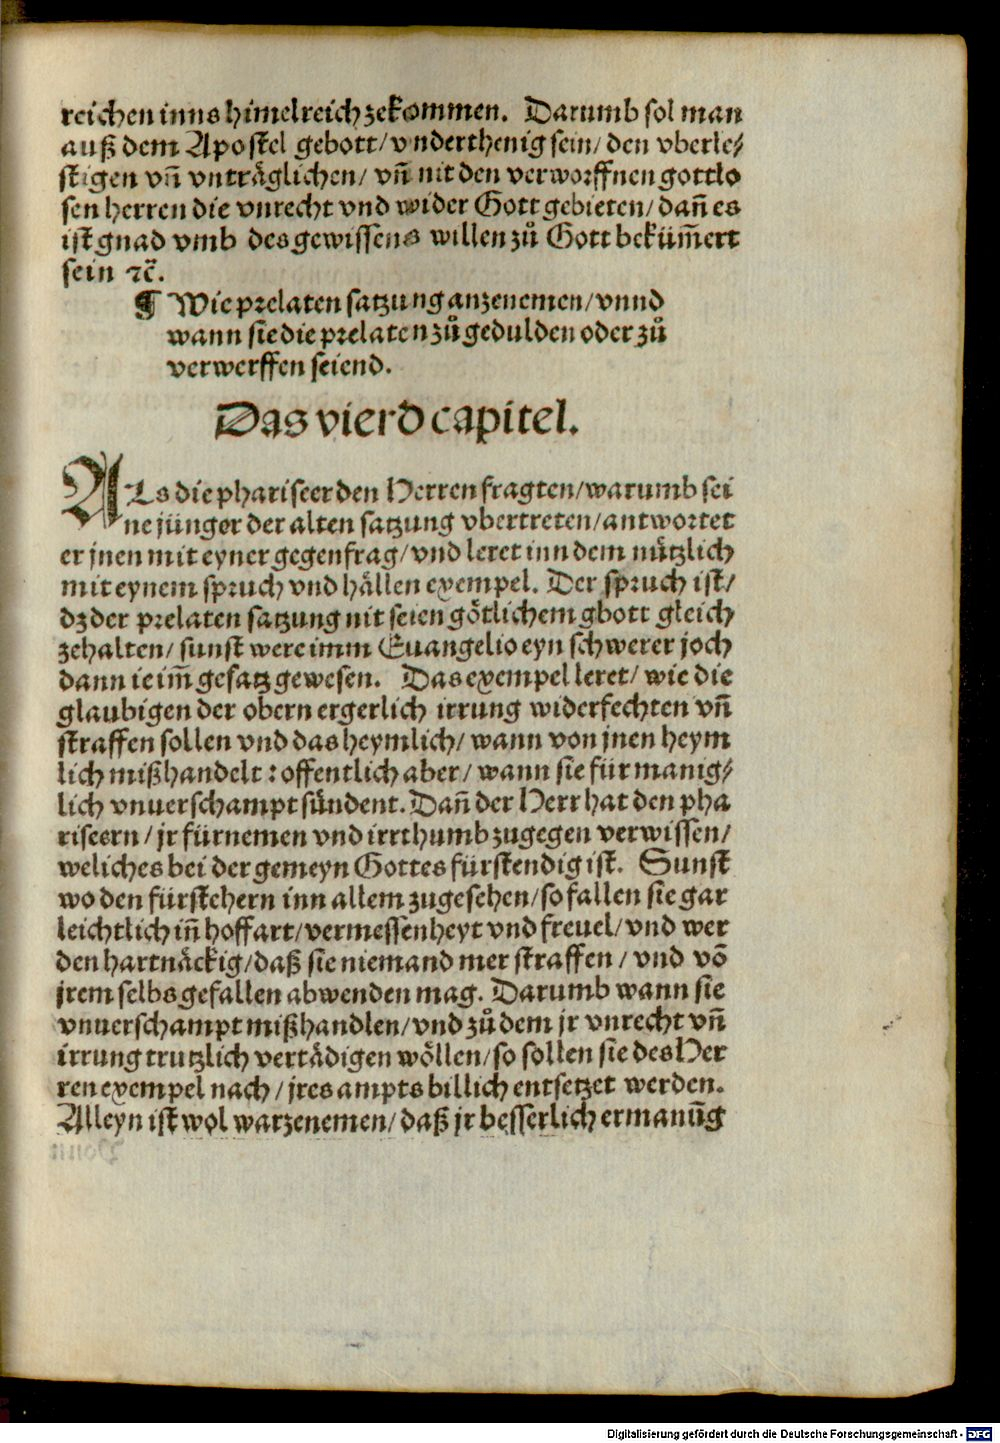 reichen inns himelreich zekommen. Darumb sol man
auß dem Apostel gebott/ vnderthenig sein/ den vberle⸗
stigen vn̄ vnträglichen/ vn̄ nit den verworffnen gottlo
sen herren die vnrecht vnd wider Gott gebieten/ dan̄ es
ist gnad vmb des gewissens willen zů Gott bekūm̄ert
sein ⁊c̄.
¶ Wie prelaten satzung anzenemen/ vnnd
wann sie die prelaten zů gedulden oder zů
verwerffen seiend.
Das vierd capitel.
ALs die phariseer den Herren fragten/ warumb sei
ne jünger der alten satzung vbertreten/ antwortet
er jnen mit eyner gegenfrag/ vnd leret inn dem nützlich
mit eynem spruch vnd hällen exempel. Der spruch ist/
dz der prelaten satzung nit seien götlichem gbott gleich
zehalten/ sunst were imm Euangelio eyn schwerer joch
dann ie im̄ gesatz gewesen. Das exempel leret/ wie die
glaubigen der obern ergerlich irrung widerfechten vn̄
straffen sollen vnd das heymlich/ wann von jnen heym
lich mißhandelt : offentlich aber/ wann sie für manig⸗
lich vnuerschampt sündent. Dan̄ der Herr hat den pha
riseern/ jr fürnemen vnd irrthumb zugegen verwissen/
weliches bei der gemeyn Gottes fürstendig ist. Sunst
wo den fürstehern inn allem zugesehen/ so fallen sie gar
leichtlich in̄ hoffart/ vermessenheyt vnd freuel/ vnd wer
den hartnäckig/ daß sie niemand mer straffen/ vnd vō
jrem selbs gefallen abwenden mag. Darumb wann sie
vnuerschampt mißhandlen/ vnd zů dem jr vnrecht vn̄
irrung trutzlich vertädigen wöllen/ so sollen sie des Her
ren exempel nach/ jres ampts billich entsetzet werden.
Alleyn ist wol warzenemen/ daß jr besserlich ermanūg
Digitalisierung gefördert durch die Deutsche Forschungsgemeinschaft - DFG